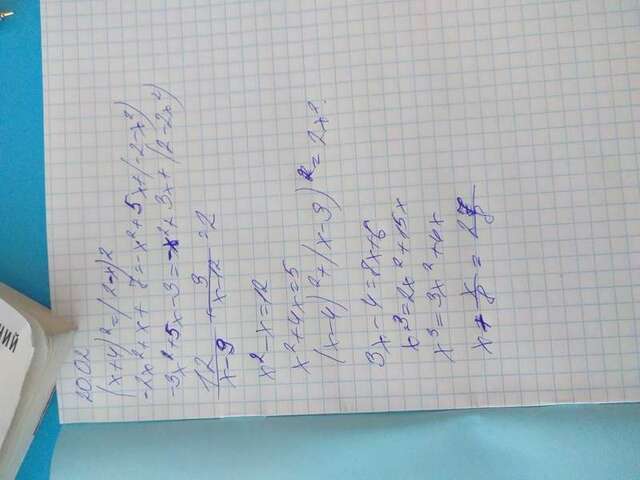 20.02
(x+4)²=(2-x)²
-2x²+x+7=-x²+5x+(-2-x²)
-3x²+5x-3=-x²+3x+(2-2x²)
12/x-9 + 3/x-12 =2
x²-x=12
x²+4x=5
(x-4)²+(x-9)²=2x².
3x-4=8x+6
x³=2x²+15x
x³=3x²+4x
НИЙ